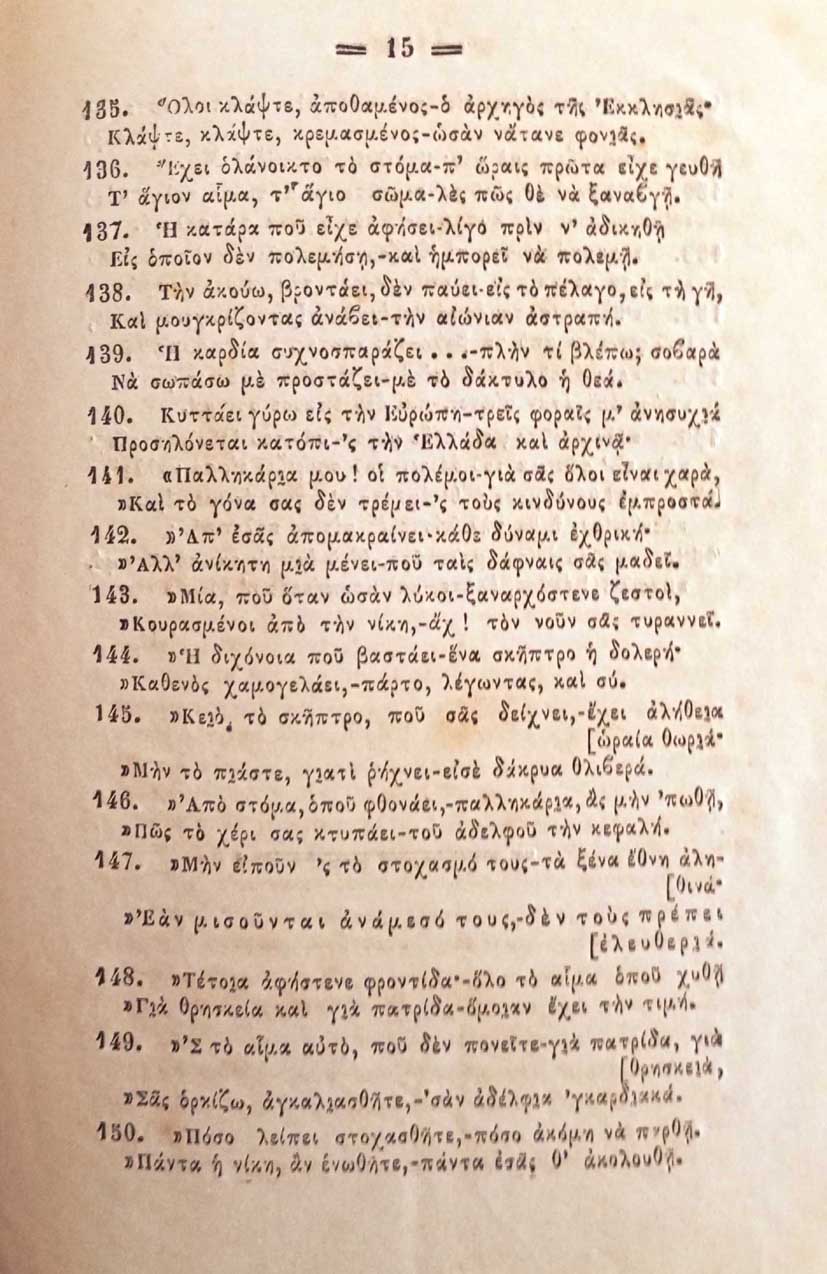 = 15 =
135. Ὅλοι κλάψτε, ἀποθαμένος-ὁ ἀρχηγὸς τῆς Ἐκκλησι̯ᾶς·
Κλάψτε, κλάψτε, κρεμασμένος-ὡσὰν νἄτανε φονι̯ᾶς.
136. Ἔχει ὁλάνοικτο τὸ στόμα-π’ ὥραις πρῶτα εἶχε γευθῆ
Τ’ ἅγιον αἷμα, τ’ ἅγιο σῶμα-λὲς πῶς θὲ νὰ ξαναβγῇ.
137. Ἡ κατάρα ποῦ εἶχε ἀφήσει-λίγο πρὶν ν’ ἀδικηθῇ
Εἰς ὁποῖον δὲν πολεμήσῃ,-καὶ ἠμπορεῖ νὰ πολεμῇ.
138. Τὴν ἀκούω, βροντάει, δὲν παύει-εἰς τὸ πέλαγο, εἰς τὴ γῆ,
Καὶ μουγκρίζοντας ἀνάβει-τὴν αἰώνιαν ἀστραπή.
139. Ἡ καρδία συχνοσπαράζει ...-πλὴν τί βλέπω; σοβαρὰ
Νὰ σωπάσω μὲ προστάζει-μὲ τὸ δάκτυλο ἡ θεά.
140. Κυττάει γύρω εἰς τὴν Εὐρώπη-τρεῖς φοραῖς μ’ ἀνησυχι̯ά
Προσηλόνεται κατόπι-’ς τὴν Ἑλλάδα καὶ ἀρχινᾷ·
141. «Παλληκάρι̯α μου! οἱ πολέμοι-γιὰ σᾶς ὅλοι εἶναι χαρὰ,
»Καὶ τὸ γόνα σας δὲν τρέμει-’ς τοὺς κινδύνους ἐμπροστά.
142. »Ἀπ’ ἐσᾶς ἀπομακραίνει-κάθε δύναμι ἐχθρική·
»Ἀλλ’ ἀνίκητη μι̯ὰ μένει-ποῦ ταὶς δάφναις σᾶς μαδεῖ.
143. »Μία, ποῦ ὅταν ὡσὰν λύκοι-ξαναρχόστενε ζεστοὶ,
»Κουρασμένοι ἀπὸ τὴν νίκη,-ἄχ! τὸν νοῦν σᾶς τυραννεῖ.
144. »Ἡ διχόνοια ποῦ βαστάει-ἕνα σκῆπτρο ἡ δολερή·
»Καθενὸς χαμογελάει,-πάρτο, λέγωντας, καὶ σύ.
145. »Κει̯ὸ, τὸ σκῆπτρο, ποῦ σᾶς δείχνει,-ἔχει ἀλήθει̯α
[ὡραία θωρι̯ά·
»Μὴν τὸ πι̯άστε, γι̯ατὶ ῥήχνει-εἰσὲ δάκρυα θλιβερά.
146. »Ἀπὸ στόμα, ὁποῦ φθονάει,-παλληκάρι̯α, ἂς μὴν ’πωθῇ,
»Πῶς τὸ χέρι σας κτυπάει-τοῦ ἀδελφοῦ τὴν κεφαλή.
147. »Μὴν εἰποῦν ’ς τὸ στοχασμό τους-τὰ ξένα ἔθνη ἀλη-
[θινά·
»Ἐὰν μισοῦνται ἀνάμεσό τους,-δὲν τοὺς πρέπει
[ἐλευθερι̯ά.
148. »Τέτοι̯α ἀφήστενε φροντίδα·-ὅλο τὸ αἷμα ὁποῦ χυθῇ
»Γι̯ὰ θρησκεία καὶ γι̯ὰ πατρίδα-ὅμοι̯αν ἔχει τὴν τιμή.
149. »Σ τὸ αἷμα αὐτὸ, ποῦ δὲν πονεῖτε-γι̯ὰ πατρίδα, γιὰ
[θρησκει̯ὰ,
»Σᾶς ὁρκίζω, ἀγκαλι̯ασθῆτε,-’σὰν ἀδέλφι̯α ’γκαρδι̯ακά.
150. »Πόσο λείπει στοχασθῆτε,-πόσο ἀκόμη νὰ παρθῇ.
»Πάντα ἡ νίκη, ἂν ἑνωθῆτε,-πάντα ἐσᾶς θ’ ἀκολουθῇ.